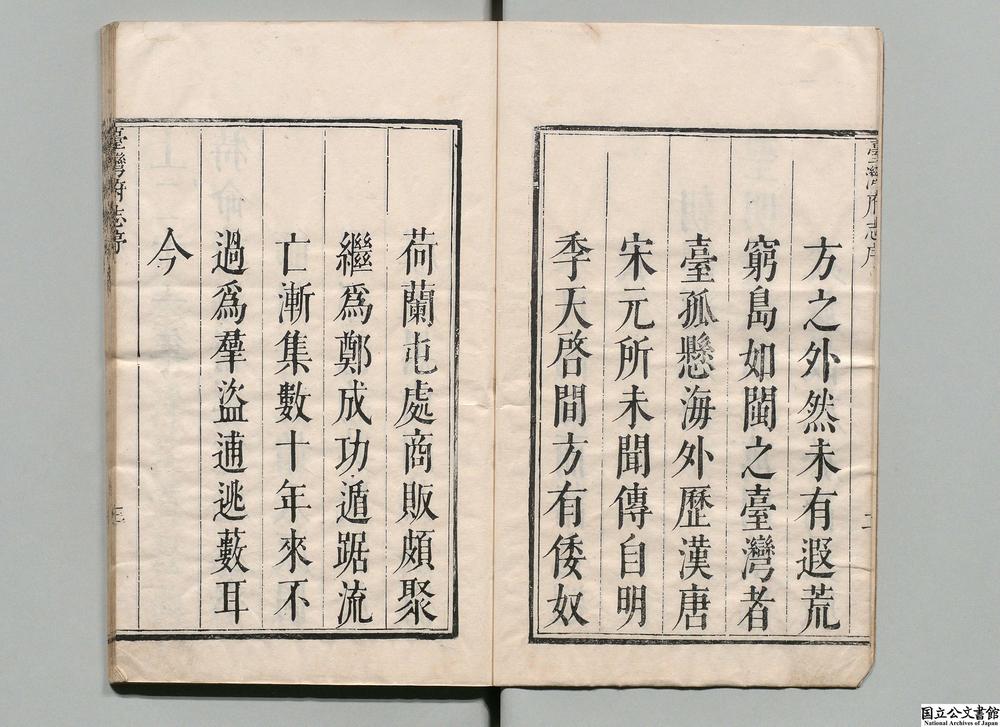 臺灣府志序
二
方之外然未有遐荒
窮島如閩之臺灣者
臺孤懸海外歷漢唐
宋元所未聞傳自明
季天啓間方有倭奴
荷蘭屯處商販頗聚
繼爲鄭成功遁踞流
亡漸集數十年來不
過爲羣盜逋逃藪耳
今
臺灣府志序
三
国立公文書館
National Archives of Japan